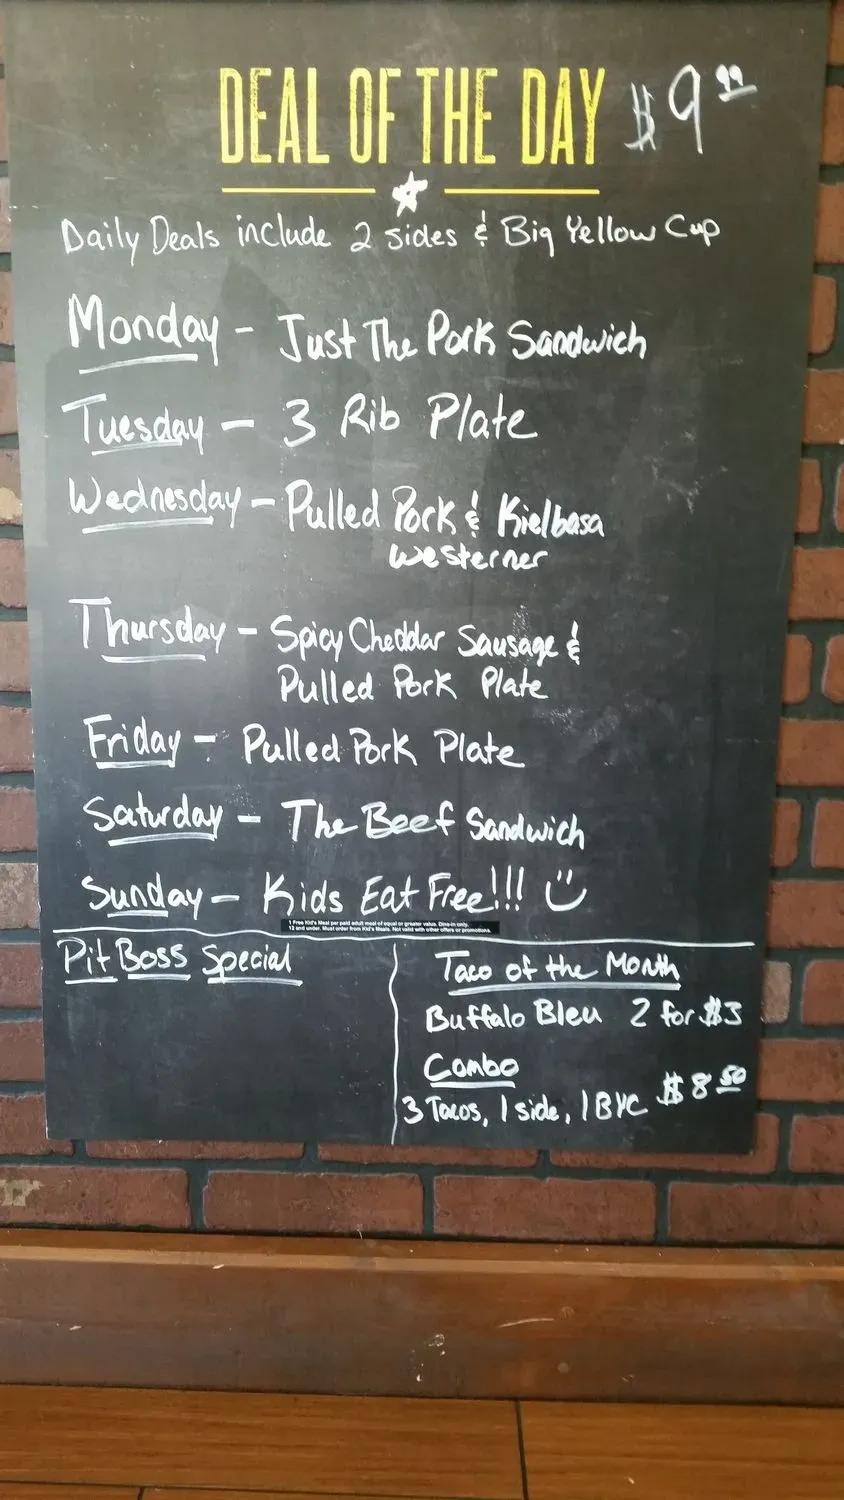 DEAL OF THE DAY $9.99
Daily Deals include 2 sides & Big Yellow Cup
Monday - Just The Pork Sandwich
Tuesday - 3 Rib Plate
Wednesday - Pulled Pork & Kielbasa
Westerner
Thursday - Spicy Cheddar Sausage &
Pulled Pork Plate
Friday - Pulled Pork Plate
Saturday - The Beef Sandwich
Sunday - Kids Eat Free!!!
1 Free Kid's Meal per paid adult meal of equal or greater value. Dine-in only.
12 and under. Must order from Kid's Meals. Not valid with other offers or promotions.
Pit Boss Special
Taco of the Month
Buffalo Bleu 2 for $3
Combo
3 Tacos, 1 side, 1 BYC $8.50